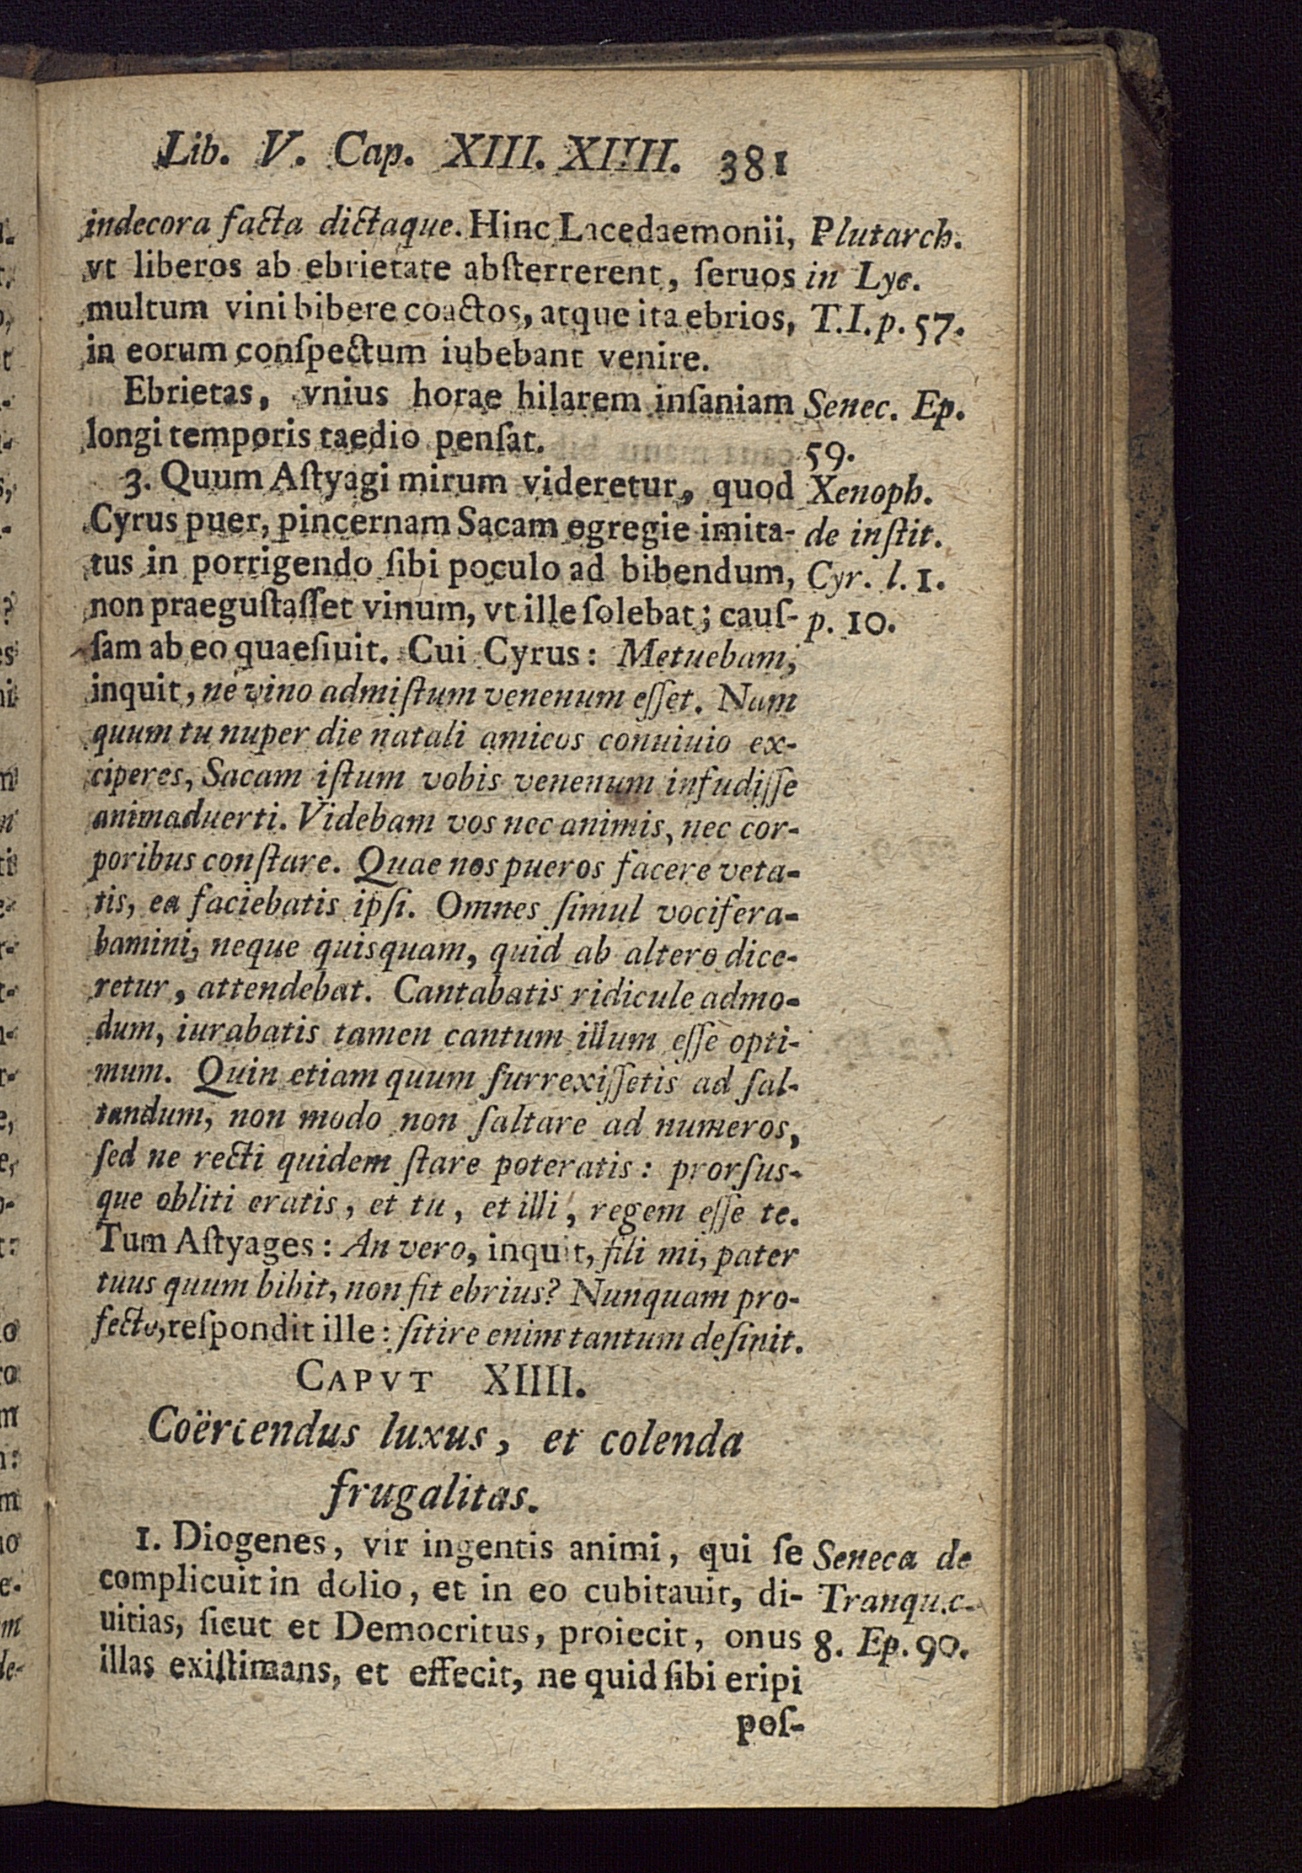 Lib. V. Cap. XIII. XIIII. 381
indecora facta dictaque. Hinc Lacedaemonii, Plutarch.
vt liberos ab ebrietate abſterrerent, ſeruos in Lyc.
multum vini bibere coactos, atque ita ebrios, T. I. p. 57.
in eorum conſpectum iubebant venire.
Ebrietas, vnius horae hilarem inſaniam Senec. Ep.
longi temporis taedio penſat. 59.
3. Quum Aſtyagi mirum videretur, quod Xenoph.
Cyrus puer, pincernam Sacam egregie imita- de inſtit.
tus in porrigendo ſibi poculo ad bibendum, Cyr. l. 1.
non praeguſtaſſet vinum, vt ille ſolebat; cauſ- p. 10.
ſam ab eo quaeſiuit. Cui Cyrus: Metuebam,
inquit, ne vino admiſtum venenum eſſet. Nam
quum tu nuper die natali amicos conuiuio ex-
ciperes, Sacam iſtum vobis venenum infudiſſe
animaduerti. Videbam vos nec animis, nec cor-
poribus conſtare. Quae nos pueros facere veta-
tis, ea faciebatis ipſi. Omnes ſimul vocifera-
bamini, neque quisquam, quid ab altero dice-
retur, attendebat. Cantabatis ridicule admo-
dum, iurabatis tamen cantum illum eſſe opti-
mum. Quin etiam quum ſurrexiſſetis ad ſal-
tandum, non modo non ſaltare ad numeros,
ſed ne recti quidem ſtare poteratis: prorſus-
que obliti eratis, et tu, et illi, regem eſſe te.
Tum Aſtyages: An vero, inquit, fili mi, pater
tuus quum bibit, non fit ebrius? Nunquam pro-
fecto, reſpondit ille: ſitire enim tantum deſinit.
CAPVT XIIII.
Coërcendus luxus, et colenda
frugalitas.
1. Diogenes, vir ingentis animi, qui ſe Seneca de
complicuit in dolio, et in eo cubitauit, di- Tranqu. c.
uitias, ſicut et Democritus, proiecit, onus 8. Ep. 90.
illas exiſtimans, et effecit, ne quid ſibi eripi
poſ-